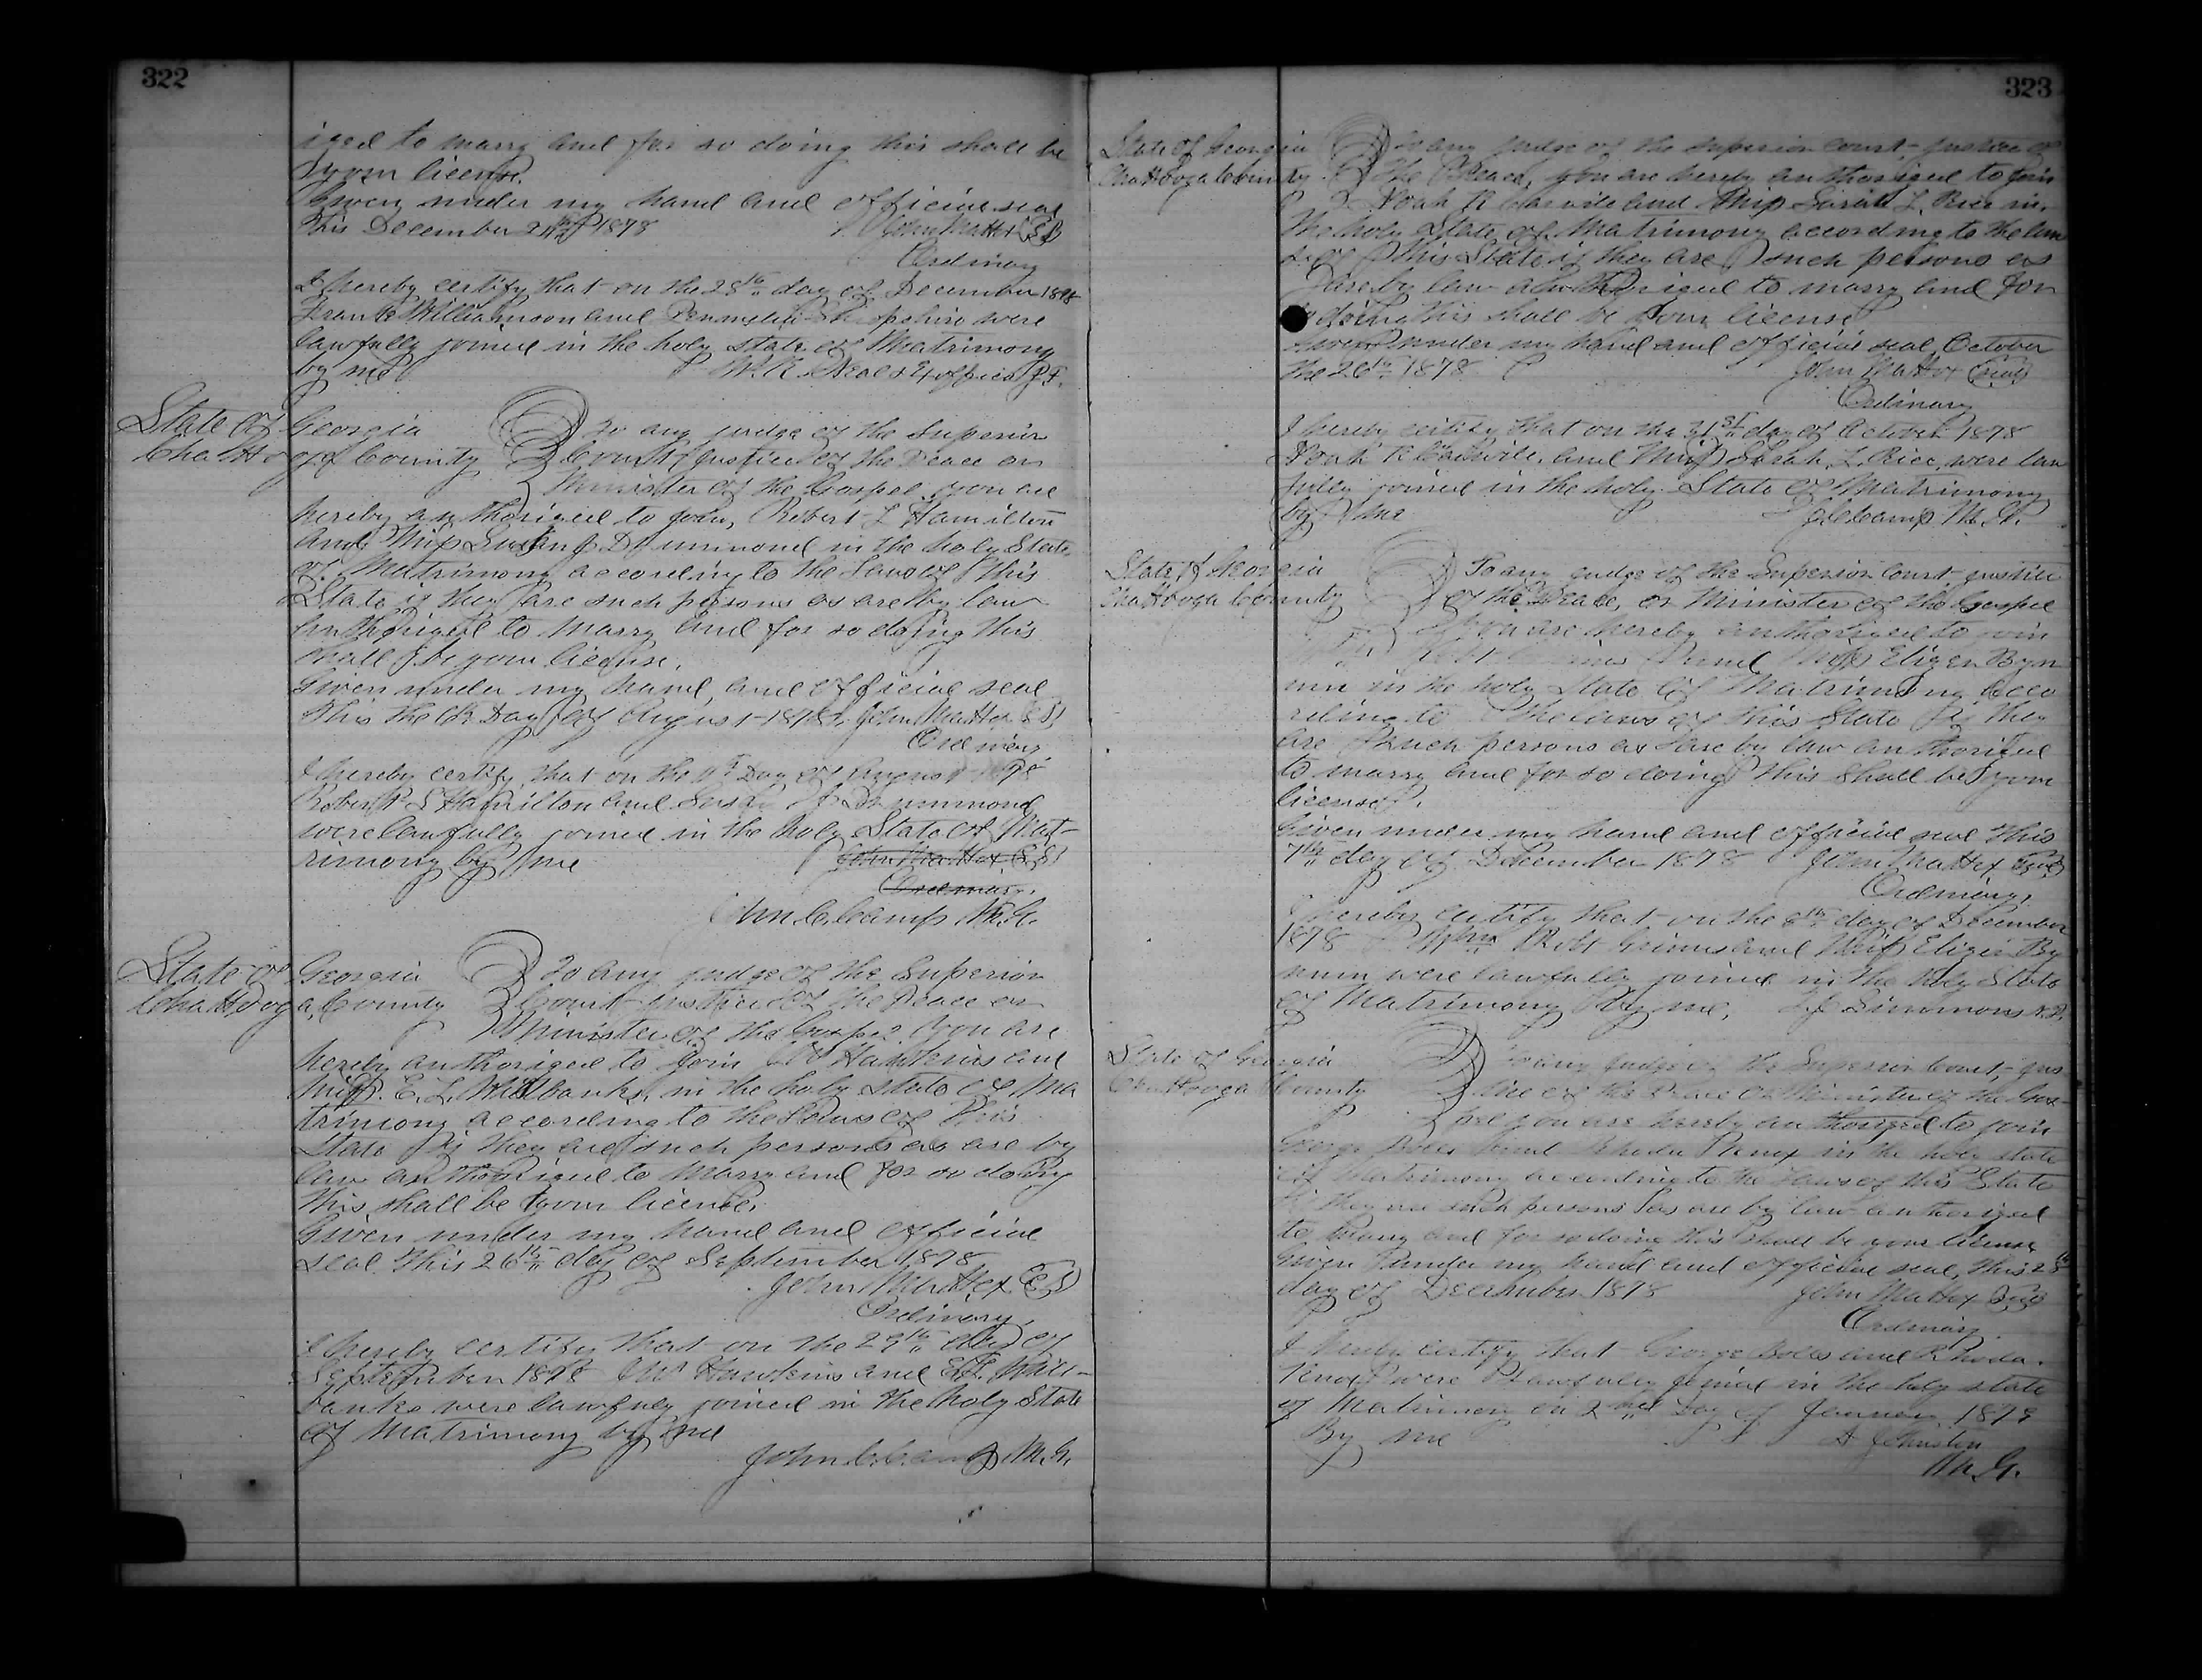 322
ized to marry and for so doing this shall be
your license.
Given under my hand and official seal
this December 24th 1878 John Mattox (LS)
Ordinary
I hereby certify that on the 25th day of December 1878
Frank Williamson and Shropshire were
lawfully joined in the holy state of Matrimony
by me W. R. Neal Exofficio J.P.
State of Georgia To any judge of the Superior
Chattooga County Court Justice of the Peace or
Minister of the Gospel you are
hereby authorized to join, Robert L Hamilton
and Miss Susan J. Drummond in the holy State
of Matrimony according to the Laws of this
State if they are such persons as are by law
authorized to marry and for so doing this
shall be your license.
Given under my hand and official seal
this the Day of August 1878. John Mattox (LS)
Ordinary
I hereby certify that on the Day of August
Robert L Hamilton and Susan J Drummond
were lawfully joined in the holy State of Mat-
rimony by me John Mattox (LS)
Ordinary.
Jhn C. Camp M.G.
State of Georgia To any judge of the Superior
Chattooga County Court Justice of the Peace or
Minister of the Gospel you are
hereby authorized to join J W Hawkins and
Miss. E. L. Willbanks, in the holy state of Ma
trimony according to the Laws of this
State if they are such persons as are by
law authorized to marry and for so doing
this shall be your license.
Given under my hand and official
seal this 26th day of September 1878
John Mattox (LS)
Ordinary
I hereby certify that on the 29th day of
September 1878 J W Hawkins and E.L. Will-
banks were lawfuly joined in the holy State
of Matrimony by me
John C. Camp M.G.
323
State of Georgia To any judge of the Superior Court, Justice of
Chattooga County the Peace, you are hereby authorized to join
Noah R and Miss Sarah L. Rice in
the holy State of Matrimony according to the law
s of this State if they are such persons as
are by law authorized to marry and for
so doing this shall be your license
Given under my hand and official seal October
the 26th 1878 John Mattox (Seal)
Ordinary
I hereby certify that on the 31st day of October 1878
Noah R and Miss Sarah, L. Rice, were law
fully joined in the holy State of Matrimony
by me J.C. Camp M.G.
State of Georgia To any judge of the Superior Court, justice
Chattooga County of the Peace, or Minister of the Gospel
you are hereby authorized to join
Robt Grimes and Miss Elizer Byn
um in the holy State of Matrimony acco
rding to the laws of this State if they
are such persons as are by law authorized
to marry and for so doing this shall be your
license.
Given under my hand and official seal this
7th day of December 1878 John Mattox (Seal)
Ordinary,
I hereby certify that on the 8th day of December
1878 Robt Grimes and Miss Elizer By
num were lawfully joined in the holy State
of Matrimony by me, Simmons N.P.
State of Georgia To any judge of the Superior Court, jus
Chattooga County tice of the Peace or Minister of the Gos-
pel you are hereby authorized to join
George Boles and Rhoda Knox in the holy state
of Matrimony according to the laws of this State
if they are such persons as are by law authorized
to marry and for so doing this shall be your license
Given under my hand and official seal, this 28th
day of December 1878 John Mattox (Seal)
Ordinary.
I hereby certify that George Boles and Rhoda.
Knox were lawfully joined in the holy state
of Matrimony on 2nd Day of January 1879
By me Johnston
M.G.